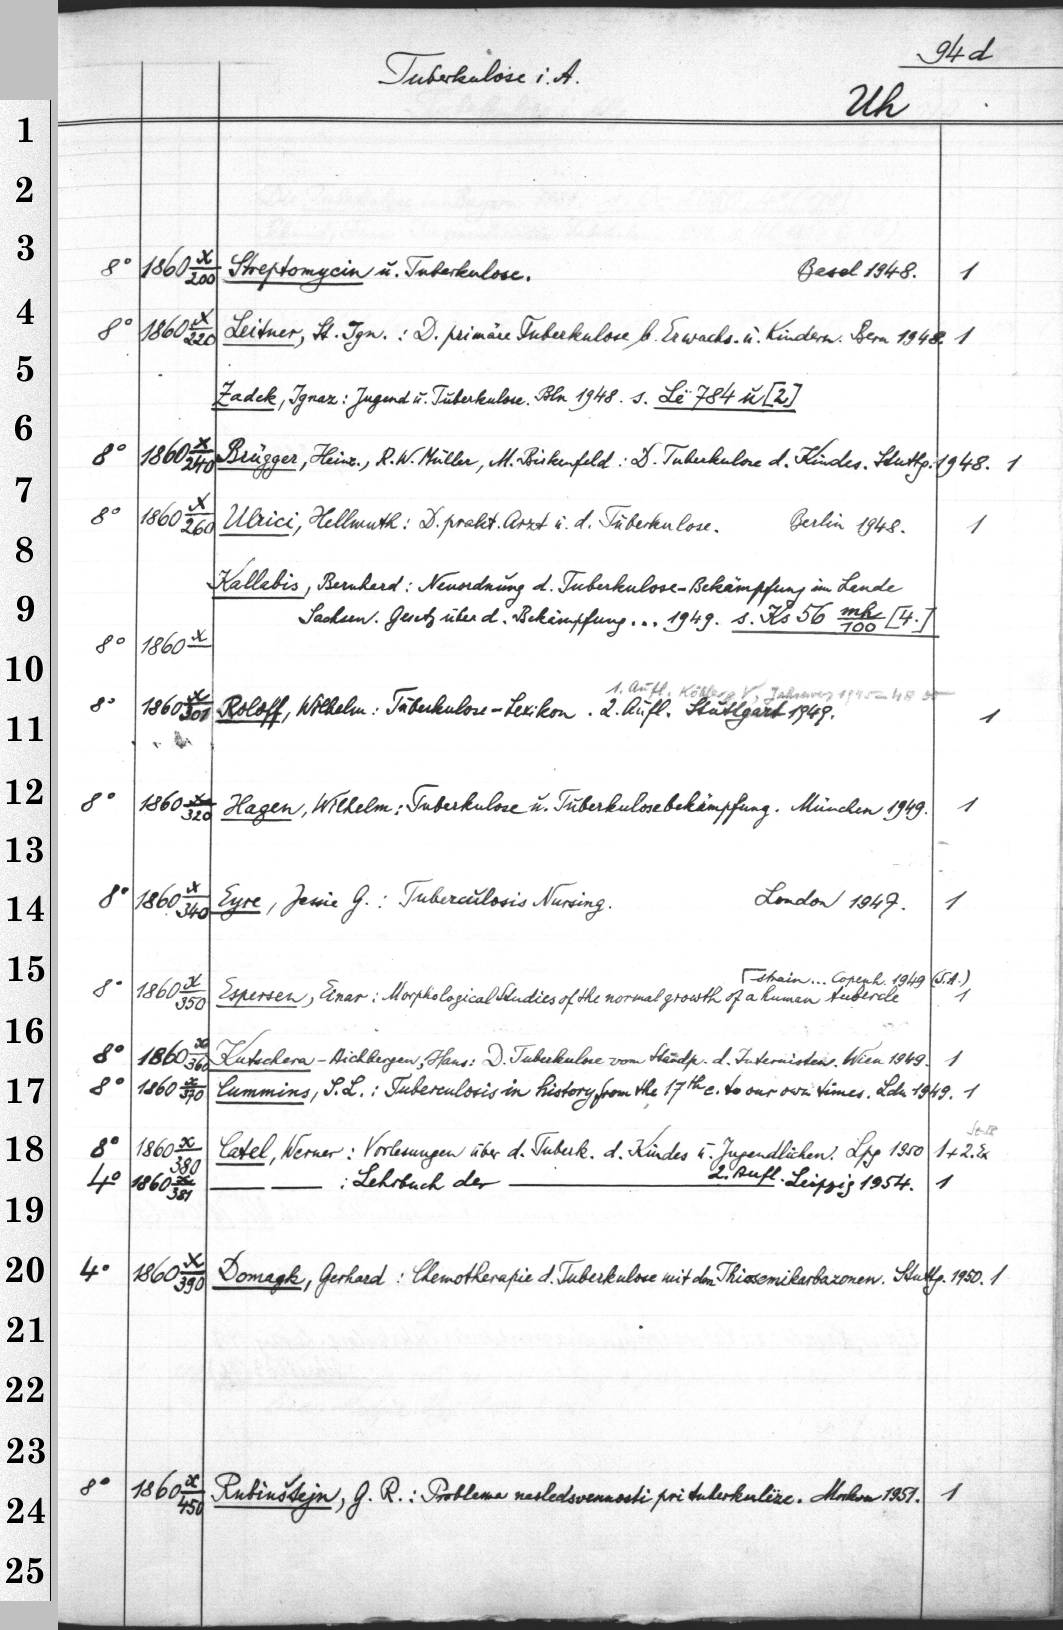 94 d
Tuberkulose i. A.
Uh
1
2
3
8° 1860 x/200 Streptomycin u. Tuberkulose. Basel 1948. 1
4
8° 1860 x/220 Leitner, St. Ign. : D. primäre Tuberkulose b. Erwachs. u. Kindern. Bern 1948. 1
5
Zadek, Ignaz: Jugend u. Tuberkulose. Bln 1948. s. Lë 784 ü [2.]
6
8° 1860 x/240 Brügger, Heinz., R. W. Müller, M. Birkenfeld : D. Tuberkulose d. Kindes. Stuttg. 1948. 1
7
8° 1860 x/260 Ulrici, Hellmuth: D. prakt. Arzt u. d. Tuberkulose. Berlin 1948. 1
8
Kallabis, Bernhard: Neuordnung d. Tuberkulose-Bekämpfung im Lande
9
Sachsen. Gesetz über d. Bekämpfung... 1949. s. Ks 56 mh/100 [4.]
8° 1860 x
10
1. Aufl. 1940-48
8° 1860 x/301 Roloff, Wilhelm: Tuberkulose-Lexikon. 2. Aufl. Stuttgart 1949. 1
11
12
8° 1860 x/320 Hagen, Wilhelm: Tuberkulose u. Tuberkulosebekämpfung. München 1949. 1
13
14
8° 1860 x/340 Eyre, Jessie G. : Tuberculosis Nursing. London 1947. 1
15
strain... Copenh. 1949 (S.A.)
8° 1860 x/350 Espersen, Einar : Morphological Studies of the normal growth of a human tubercle 1
16
8° 1860 x/360 Kutschera-Aichbergen, Hans: D. Tuberkulose vom Standp. d. Internisten. Wien 1949. 1
17
8° 1860 x/370 Cummins, S. L. : Tuberculosis in history from the 17th c. to our own times. Ldn 1949. 1
18
8° 1860 x/380 Catel, Werner: Vorlesungen über d. Tuberk. d. Kindes u. Jugendlichen. Lpg 1950 1 + 2. Ex
4° 1860 x/381 — — : Lehrbuch der — 2. Aufl. Leipzig 1954. 1
19
20
4° 1860 x/390 Domagk, Gerhard : Chemotherapie d. Tuberkulose mit den Thiosemikarbazonen. Stuttg. 1950. 1
21
22
23
8° 1860 x/450 Rubinštejn, G. R. : Problema nasledsvennosti pri tuberkulëze. Moskva 1951. 1
24
25